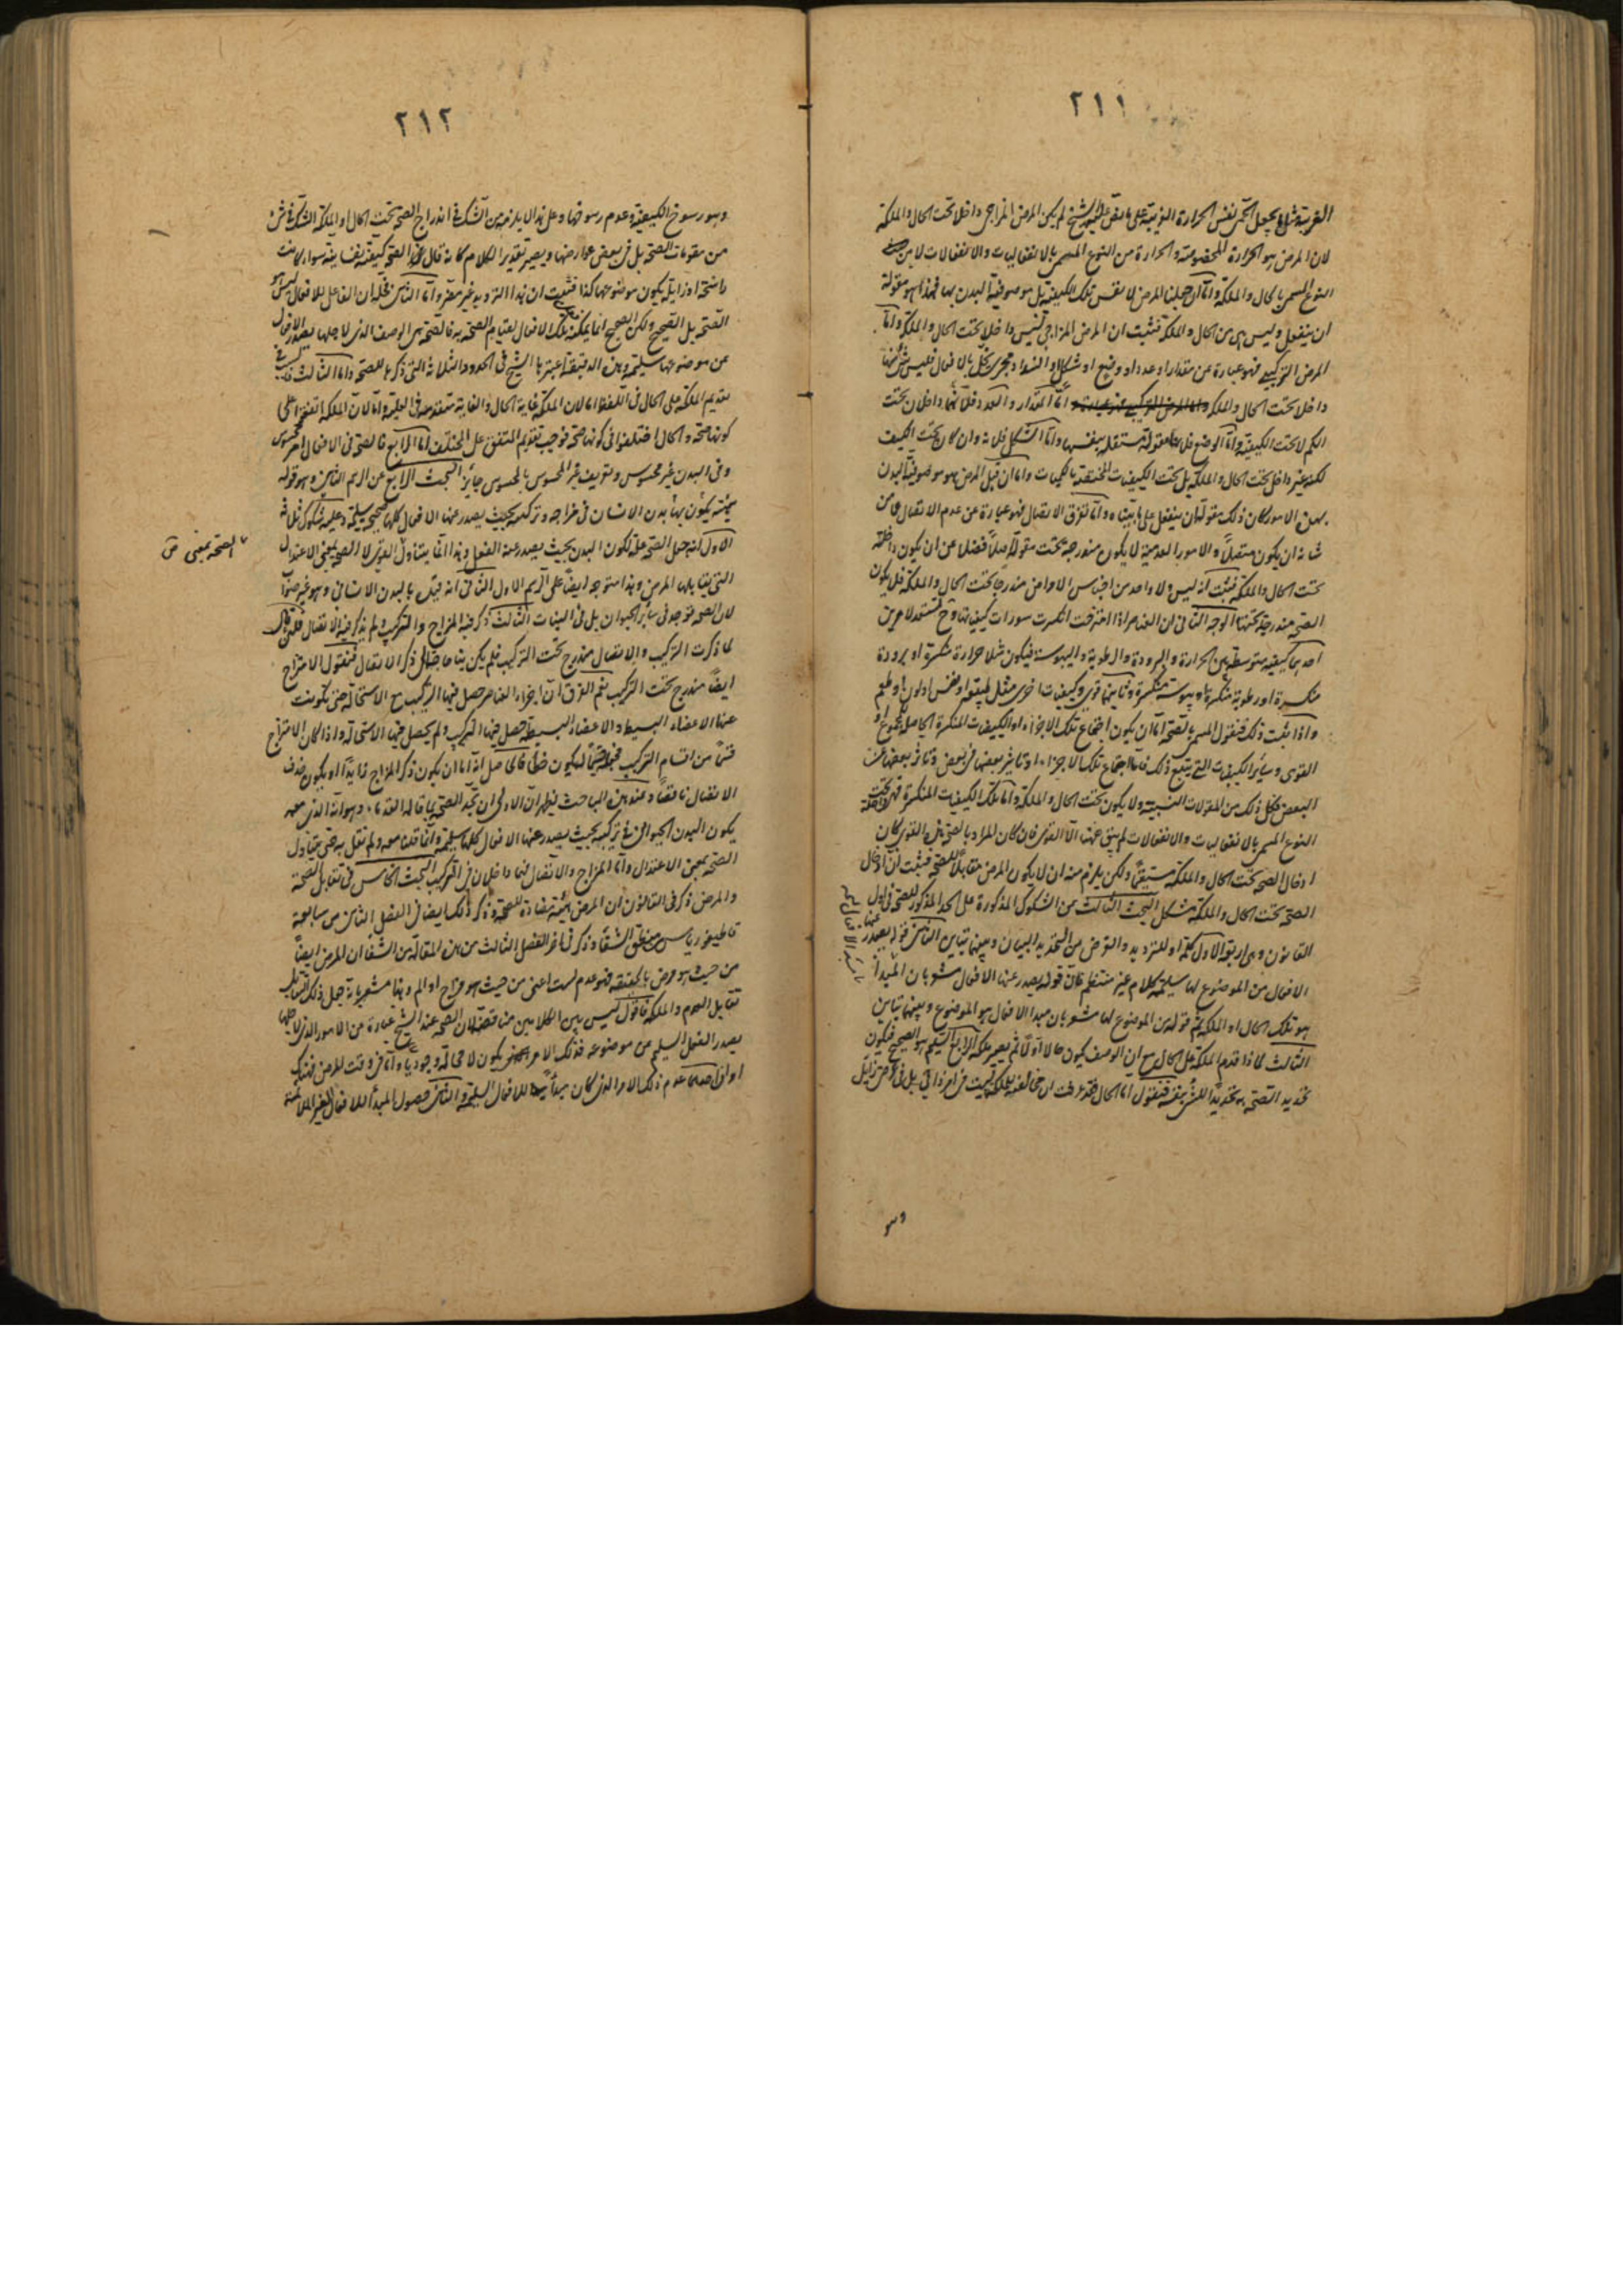 ٢١١
الغريبة مثلا يجعل الحمى نفس الحرارة الغريبة على ما نص عليه الشيخ لم يكن المرض المزاجى داخلا تحت الحال والملكة
لان المرض هو الحرارة المخصوصة والحرارة من النوع المسمى بالانفعاليات والانفعالات لا من
النوع المسمى بالحال والملكة واما ان جعلنا المرض لا نفس تلك الكيفية بل موصوفية البدن بها فهذا هو مقولة
ان ينفعل وليس هى من الحال والملكة فثبت ان المرض المزاجى ليس داخلا تحت الحال والملكة واما
المرض التركيبى فهو عبارة عن مقدار او عدد او وضع او شكل او انسداد مجرى يخل بالافعال فليس شئ منها
داخلا تحت الحال والملكة اما المقدار والعدد فلانهما داخلان تحت
الكم لا تحت الكيفية واما الوضع فلانه مقولة مستقلة بنفسها واما الشكل فلانه وان كان تحت الكيف
لكنه غير داخل تحت الحال والملكة بل تحت الكيفيات المختصة بالكميات واما ان قيل المرض هو موصوفية البدن
بهذه الامور كان ذلك مقولة ان ينفعل على ما بيناه واما تفرق الاتصال فهو عبارة عن عدم الاتصال عما من
شانه ان يكون متصلا والامور العدمية لا يكون مندرجة تحت مقولة اصلا فضلا عن ان يكون داخلة
تحت الحال والملكة فثبت انه ليس ولا واحد من اجناس الامراض مندرجا تحت الحال والملكة فلا يكون
الصحة مندرجة تحتها الوجه الثانى ان العناصر اذا امتزجت انكسرت سورات كيفياتها وح تستعد لامرين
احدهما كيفية متوسطة بين الحرارة والبرودة والرطوبة واليبوسة فيكون مثلا حرارة منكسرة او برودة
منكسرة او رطوبة منكسرة او يبوسة منكسرة وثانيهما قوى وكيفيات اخرى مثل او نفس او لون او طعم
واذا ثبت ذلك فنقول المسمى بالصحة اما ان يكون اجتماع تلك الاجزاء او الكيفيات المنكسرة الحاصلة
القوى وسائر الكيفيات التى يتبع ذلك فاما اجتماع تلك الاجزاء او تاثير بعضها فى بعض وتاثر بعضها عن
البعض فكل ذلك من المقولات النسبية ولا يكون تحت الحال والملكة واما تلك الكيفيات المنكسرة فهى داخلة تحت
النوع المسمى بالانفعاليات والانفعالات لم يبق عنها الا القوى فان كان المراد بالصحة هذه القوى كان
ادخال الصحة تحت الحال والملكة مستقيما ولكن يلزم منه ان لا يكون المرض مقابلا للصحة فثبت ان ادخال
الصحة تحت الحال والملكة مشكل البحث الثالث من الشكوك المذكورة على الحد المذكور للصحة فى اول
القانون وهى اربعة الاول كلمة او للترديد والغرض من التحديد البيان وبينهما تباين الثانى قوله يصدر عنها
الافعال من الموضوع لها سليمة كلام غير منتظم فان قوله يصدر عنها الافعال مشعر بان المبدأ
هو تلك الحال او الملكة ثم قوله من الموضوع لها مشعر بان مبدا الافعال هو الموضوع وبينهما تباين
الثالث لماذا قدم الملكة على الحال مع ان الوصف يكون حالا اولا ثم يصير ملكة الرابع السليم هو الصحيح فيكون
تحديد الصحة به تحديدا للشئ بنفسه فنقول اما الحال فقد عرفت ان مخالفته للملكة ليست فى امر ذاتى بل فى امر زائل
وهو
٢١٢
وهو رسوخ الكيفية وعدم رسوخها وعلى هذا لا يلزم من الشك فى اندراج الصحة تحت الحال او الملكة الشك فى شئ
من مقومات الصحة بل فى بعض عوارضها ويصير تقدير الكلام كانه قال الصحة كيفية نفسانية سواء كانت
راسخة او زايلة يكون موضوعها كذا فثبت ان هذا الترديد غير مضر واما الثانى فحله ان الفاعل للافعال ليس هو
الصحة بل الصحيح ولكن الصحيح انما يمكنه تلك الافعال لقيام الصحة به فالصحة هى الوصف الذى لاجلها يصدر الافعال
عن موضوعها سليمة وهذه الدقيقة اعتبرها الشيخ فى الحدود الثلاثة التى ذكرها للصحة واما الثالث فليس فى
تقديم الملكة على الحال فى اللفظ اما لان الملكة غاية الحال والغاية متقدمة فى العلية واما لان الملكة اتفقوا على
كونها صحة والحال اختلفوا فى كونها صحة فوجب تقديم المتفق على المختلف اما الرابع فالصحة فى الافعال امر محسوس
وفى البدن غير محسوس وتعريف غير المحسوس بالمحسوس جائز البحث الرابع عن الرسم الثانى وهو قوله
هيئة يكون بها بدن الانسان فى مزاجه وتركيبه بحيث يصدر عنها الافعال كلها صحيحة سليمة وعليه شكوك ثلاثة
الاول انه جعل الصحة علة لكون البدن بحيث يصدر عنه الفعل وهذا انما يتناول القوى لا الصحة بمعنى الاعتدال
التى يقابلها المرض وهذا متوجه ايضا على الرسم الاول الثانى انه قيد بالبدن الانسانى وهو غير صواب
لان الصحة توجد فى سائر الحيوان بل فى النبات الثالث ذكر فيه المزاج والتركيب ولم يذكر فيه الاتصال فلئن قال
لما ذكرت التركيب والاتصال مندرج تحت التركيب فلم يكن بنا حاجة الى ذكر الاتصال فنقول الامتزاج
ايضا مندرج تحت التركيب نعم الفرق ان اجزاء العناصر حصل فيها التركيب مع الاستحالة حتى تكونت
عنها الاعضاء البسيطة والاعضاء البسيطة حصل فيها التركيب ولم يحصل فيها الاستحالة واذا كان الامتزاج
قسما من اقسام التركيب فالحاصل انه اما ان يكون ذكر المزاج زايدا او يكون حذف
الاتصال ناقصا وعند هذه المباحث يظهر ان الاولى ان نحد الصحة بما قاله القدماء وهو انه الذى معه
يكون البدن الحيوانى فى تركيبه بحيث يصدر عنها الافعال كلها سليمة وانما قلنا معه ولم نقل به حتى يتناول
الصحة بمعنى الاعتدال واما المزاج والاتصال فهما داخلان فى التركيب البحث الخامس فى تقابل الصحة
والمرض ذكر فى القانون ان المرض هيئة مضادة للصحة وذكر ذلك ايضا فى الفصل الثانى من سابعة
قاطيغورياس من منطق الشفا وذكر فى اخر الفصل الثالث من هذه المقالة من الشفا ان المرض ايضا
من حيث هو مرض بالحقيقة فهو عدم لست اعنى من حيث هو مزاج او الم وهذا مشعر بانه جعل ذلك التقابل
تقابل العدم والملكة فاقول ليس بين الكلامين مناقضة لان الصحة عند الشيخ عبارة من الامور الذى لاجلها
يصدر الفعل السليم من موضوعه فذلك الامر يكون لا محالة وجوديا واما فى وقت المرض فهناك
امران احدهما عدم ذلك الامر الذى كان مبدأ للافعال السليمة والثانى حصول المبدأ للافعال الغير الملائمة
الصحة بمعنى